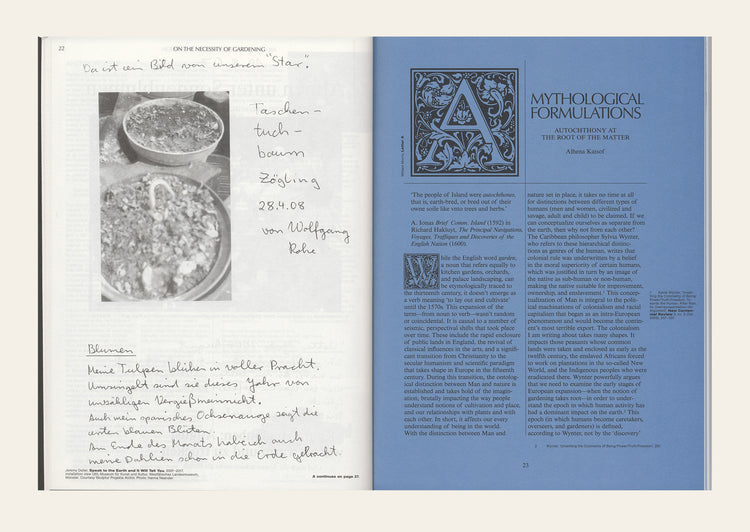 22
ON THE NECESSITY OF GARDENING
Da ist ein Bild von unserem "Star".
Taschen-
tuch-
baum
Zögling
28.4.08
von Wolfgang
Rohe
Blumen
Meine Tulpen blühen in voller Pracht.
Umringelt sind sie dieses Jahr von
unzähligen Vergißmeinnicht.
Auch mein spanisches Ochsenauge zeigt die
ersten blauen Blüten.
Am Ende des Monats habe ich auch
meine Dahlien schon in die Erde gebracht.
Jeremy Deller, Speak to the Earth and It Will Tell You, 2007–2017,
Münster. Courtesy Skulptur Projekte Archiv. Photo: Hanna Neander
A continues on page 27
William Morris, Letter A
A
MYTHOLOGICAL
FORMULATIONS
AUTOCHTHONY AT
THE ROOT OF THE MATTER
Alhena Katsof
'The people of Island were autochthones,
that is, earth-bred, or bred out of their
owne soile like vnto trees and herbs.'
A. Jonas Brief Comm. Island (1592) in
Richard Hakluyt, The Principal Navigations,
Voyages, Traffiques and Discoveries of the
English Nation (1600).
While the English word garden,
a noun that refers equally to
kitchen gardens, orchards,
and palace landscaping, can
be etymologically traced to
the thirteenth century, it doesn't emerge as
a verb meaning 'to lay out and cultivate'
until the 1570s. This expansion of the
term—from noun to verb—wasn't random
or coincidental. It is causal to a number of
seismic, perspectival shifts that took place
over time. These include the rapid enclosure
of public lands in England, the revival of
classical influences in the arts, and a signifi-
cant transition from Christianity to the
secular humanism and scientific paradigm
that takes shape in Europe in the fifteenth
century. During this transition, the ontolog-
ical distinction between Man and nature is
established and takes hold of the imagin-
ation, brutally impacting the way people
understand notions of cultivation and place,
and our relationships with plants and with
each other. In short, it affects our every
understanding of being in the world.
With the distinction between Man and
nature set in place, it takes no time at all
for distinctions between different types of
humans (men and women, civilized and
savage, adult and child) to be claimed. If we
can conceptualize ourselves as separate from
the earth, then why not from each other?
The Caribbean philosopher Sylvia Wynter,
who refers to these hierarchical distinc-
tions as genres of the human, writes that
colonial rule was underwritten by a belief
in the moral superiority of certain humans,
which was justified in turn by an image of
the native as sub-human or non-human,
making the native suitable for improvement,
ownership, and enslavement.¹ This concep-
tualization of Man is integral to the polit-
ical machinations of colonialism and racial
capitalism that began as an intra-European
phenomenon and would become the contin-
ent's most terrible export. The colonialism
I am writing about takes many shapes. It
impacts those peasants whose common
lands were taken and enclosed as early as the
twelfth century, the enslaved Africans forced
to work on plantations in the so-called New
World, and the Indigenous peoples who were
eradicated there. Wynter powerfully argues
that we need to examine the early stages of
European expansion—when the notion of
gardening takes root—in order to under-
stand the epoch in which human activity has
had a dominant impact on the earth.² This
epoch (in which humans become caretakers,
overseers, and gardeners) is defined,
according to Wynter, not by the 'discovery'
23